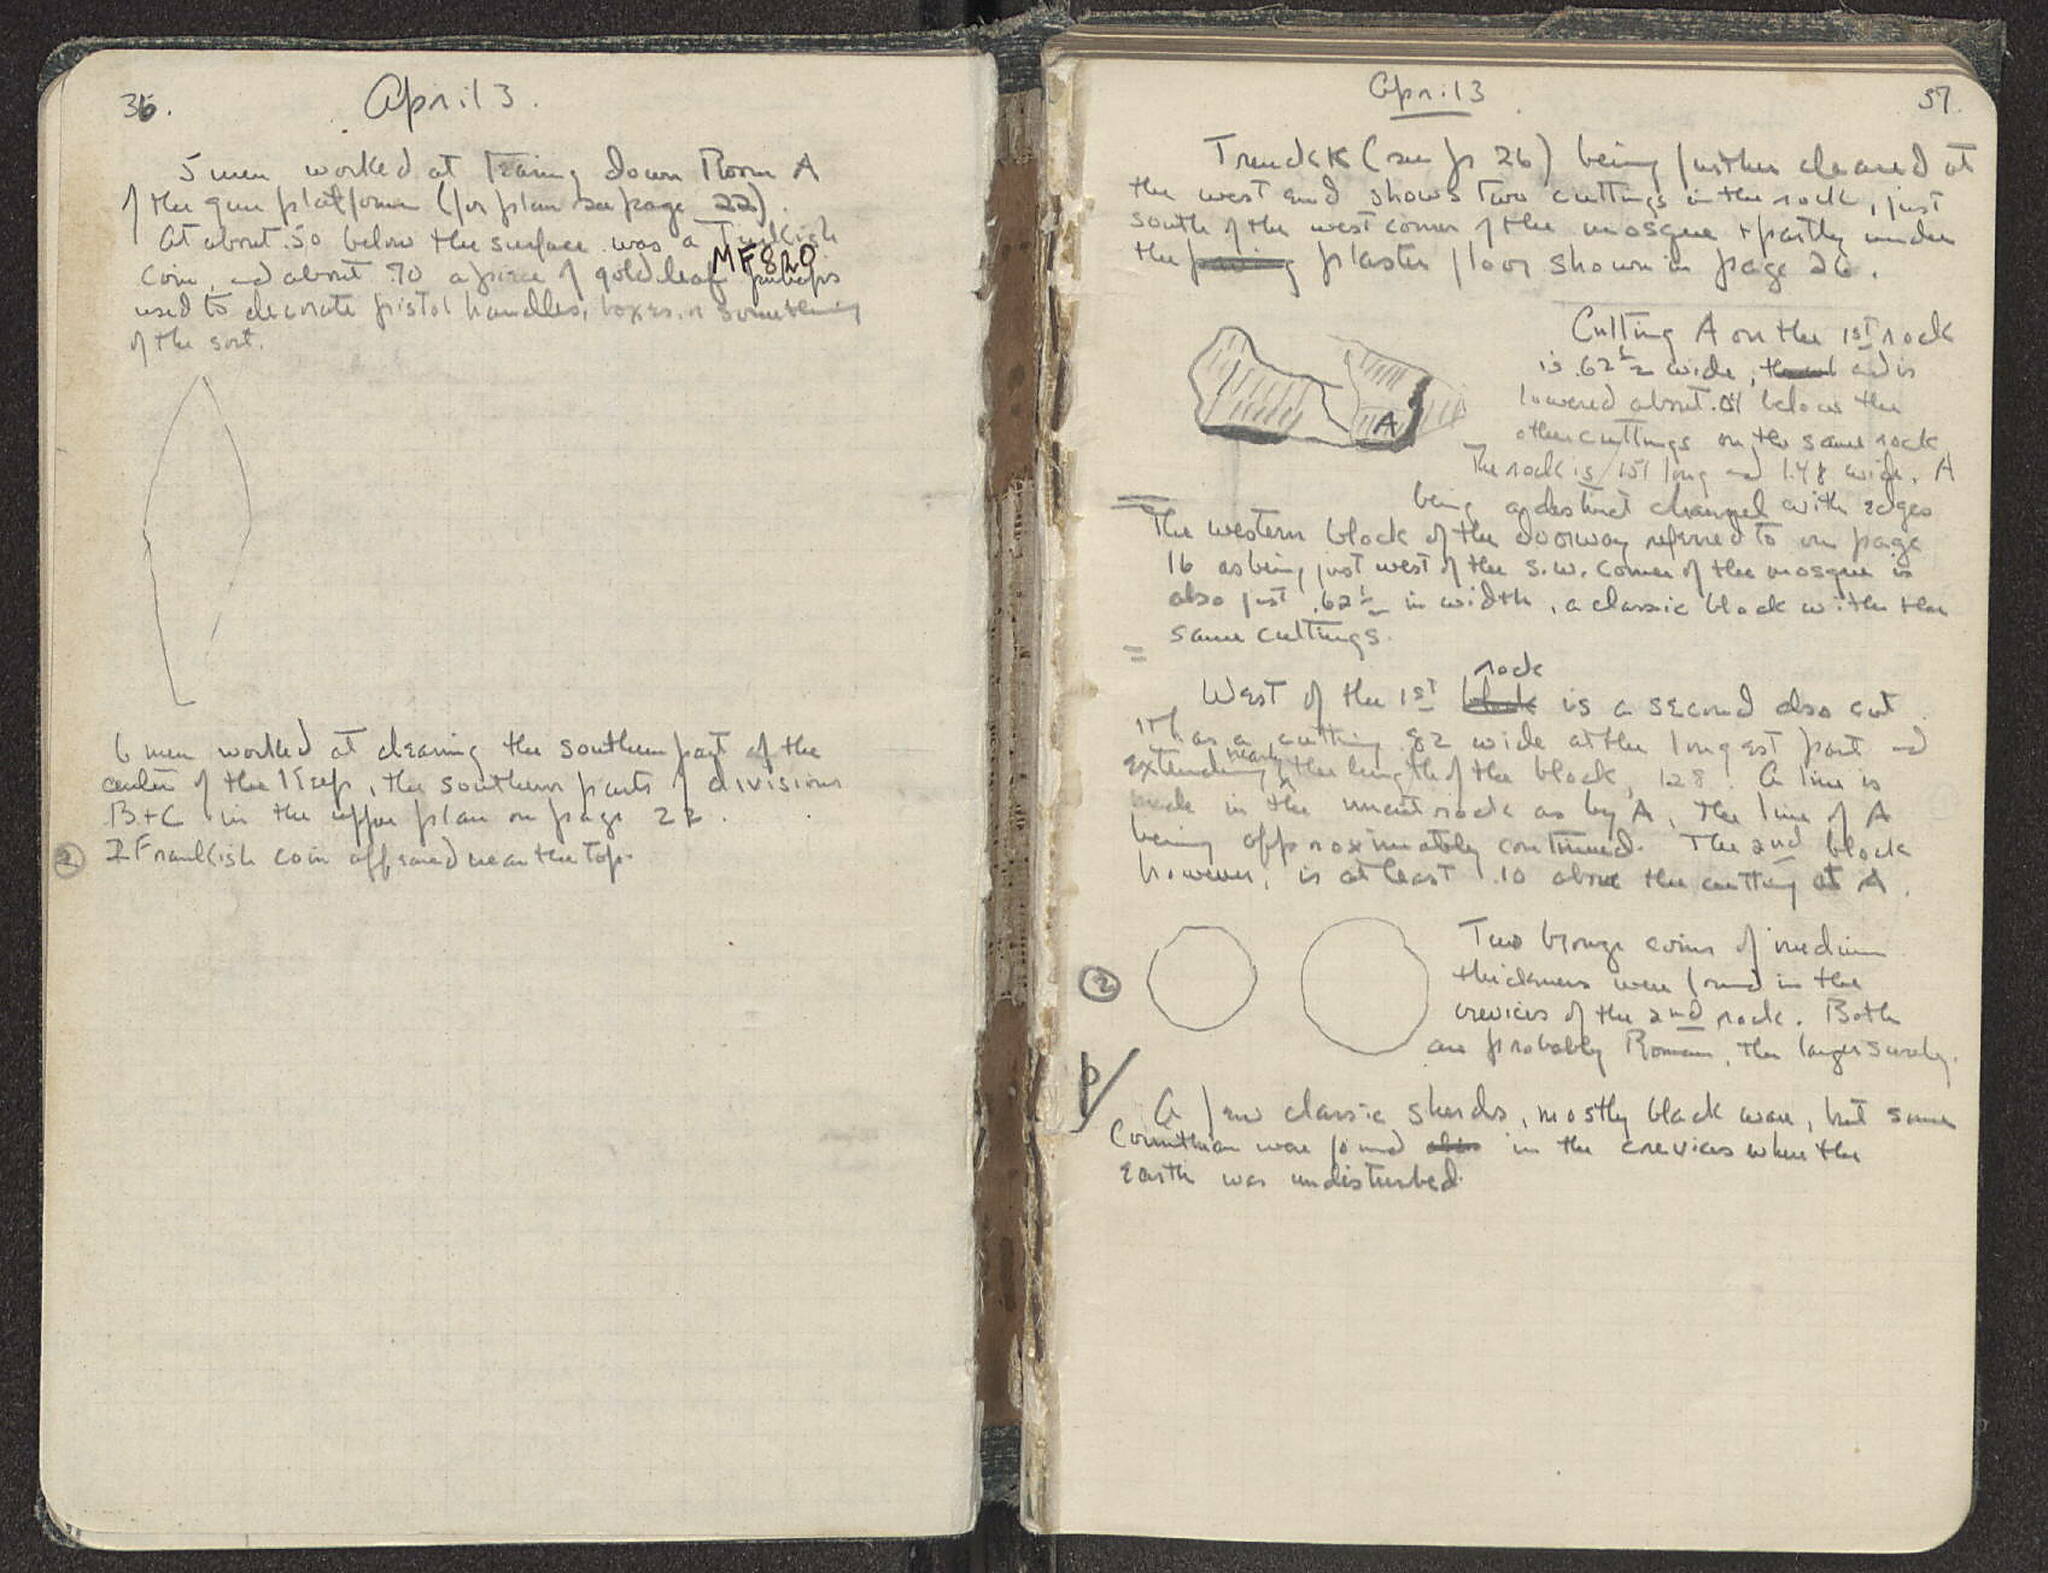 36.
April 3.
5 men worked at tearing down Room A
of the gun platform (for plan see page 22).
At about .50 below the surface was a Turkish
MF820
coin, and about .70 a piece of gold leaf perhaps
used to decorate pistol handles, boxes, or something
of the sort.
6 men worked at clearing the southern part of the
center of the Keep, the southern parts of divisions
B+C in the upper plan on page 22.
2
I Frankish coin appeared near the top.
April 3
37.
Trench K (see p 26) being further cleared at
the west end shows two cuttings in the rock, just
south of the west corner of the mosque + partly under
the paving plaster floor shown in page 26.
Cutting A on the 1st rock
is .62½ wide, and is
lowered about .01 below the
other cuttings on the same rock
The rock is 1.51 long and 1.48 wide. A
being a distinct channel with edges
A
The western block of the doorway referred to on page
16 as being just west of the S.W. corner of the mosque is
also just .62½ in width, a classic block with the
same cuttings.
rock
West of the 1st block is a second also cut.
It has a cutting .82 wide at the longest part and
extending nearly the length of the block, 1.28. A line is
made in the uncut rock as by A, the line of A
being approximately continued. The 2nd block
however, is at least .10 above the cutting at A.
2
Two bronze coins of medium
thickness were found in the
crevices of the 2nd rock. Both
are probably Roman, the larger surely.
P
A few classic sherds, mostly black ware, but some
Corinthian were found also in the crevices where the
earth was undisturbed.